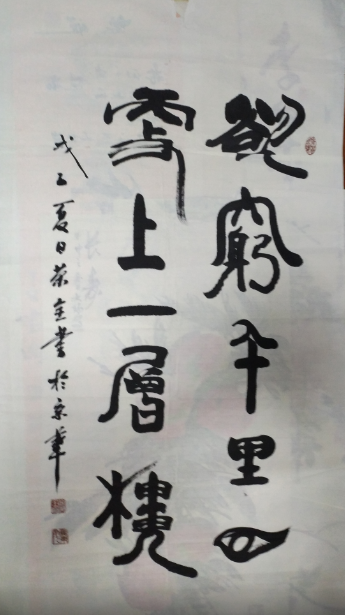 欲窮千里目
更上一層樓
戊子夏日榮全書於京華